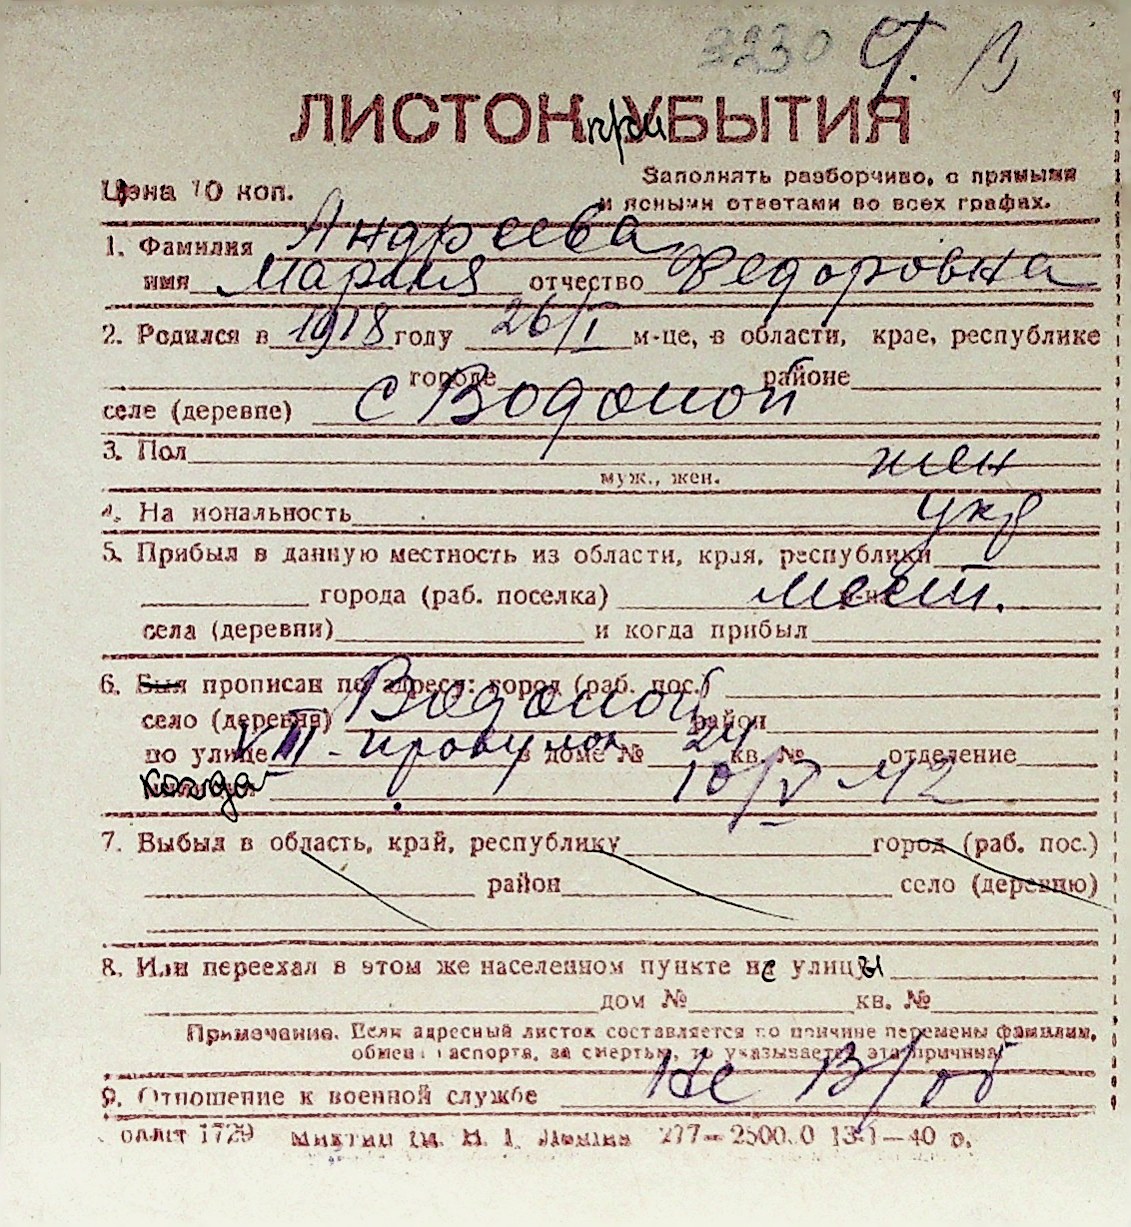 3230 Ф. В
ЛИСТОК при УБЫТИЯ
Цена 10 коп.
Заполнять разборчиво, с прямыми
и ясными ответами во всех графах.
1. Фамилия Андреева
имя Мария отчество Федоровна
2. Родился в 1918 году 26/I м-це, в области, крае, республике
городе районе
селе (деревне) с Водопой
3. Пол жен
муж., жен.
4. На иональность укр
5. Прибыл в данную местность из области, края, республики
города (раб. поселка) мест.
села (деревни) и когда прибыл
6. Был прописан по адресу: город (раб. пос.)
село (деревня) Водопой район
по улице VIII - в доме № 24 кв. № отделение
когда 10/V 42
7. Выбыл в область, край, республику город (раб. пос.)
район село (деревню)
8. Или переехал в этом же населенном пункте не улицы
дом № кв. №
Примечание. Если адресный листок составляется по причине перемены фамилии,
обмен паспорта, за смертью, то указывается эта причина
9. Отношение к военной службе не В/об
1729 277—2500.0 13-I—40 р.